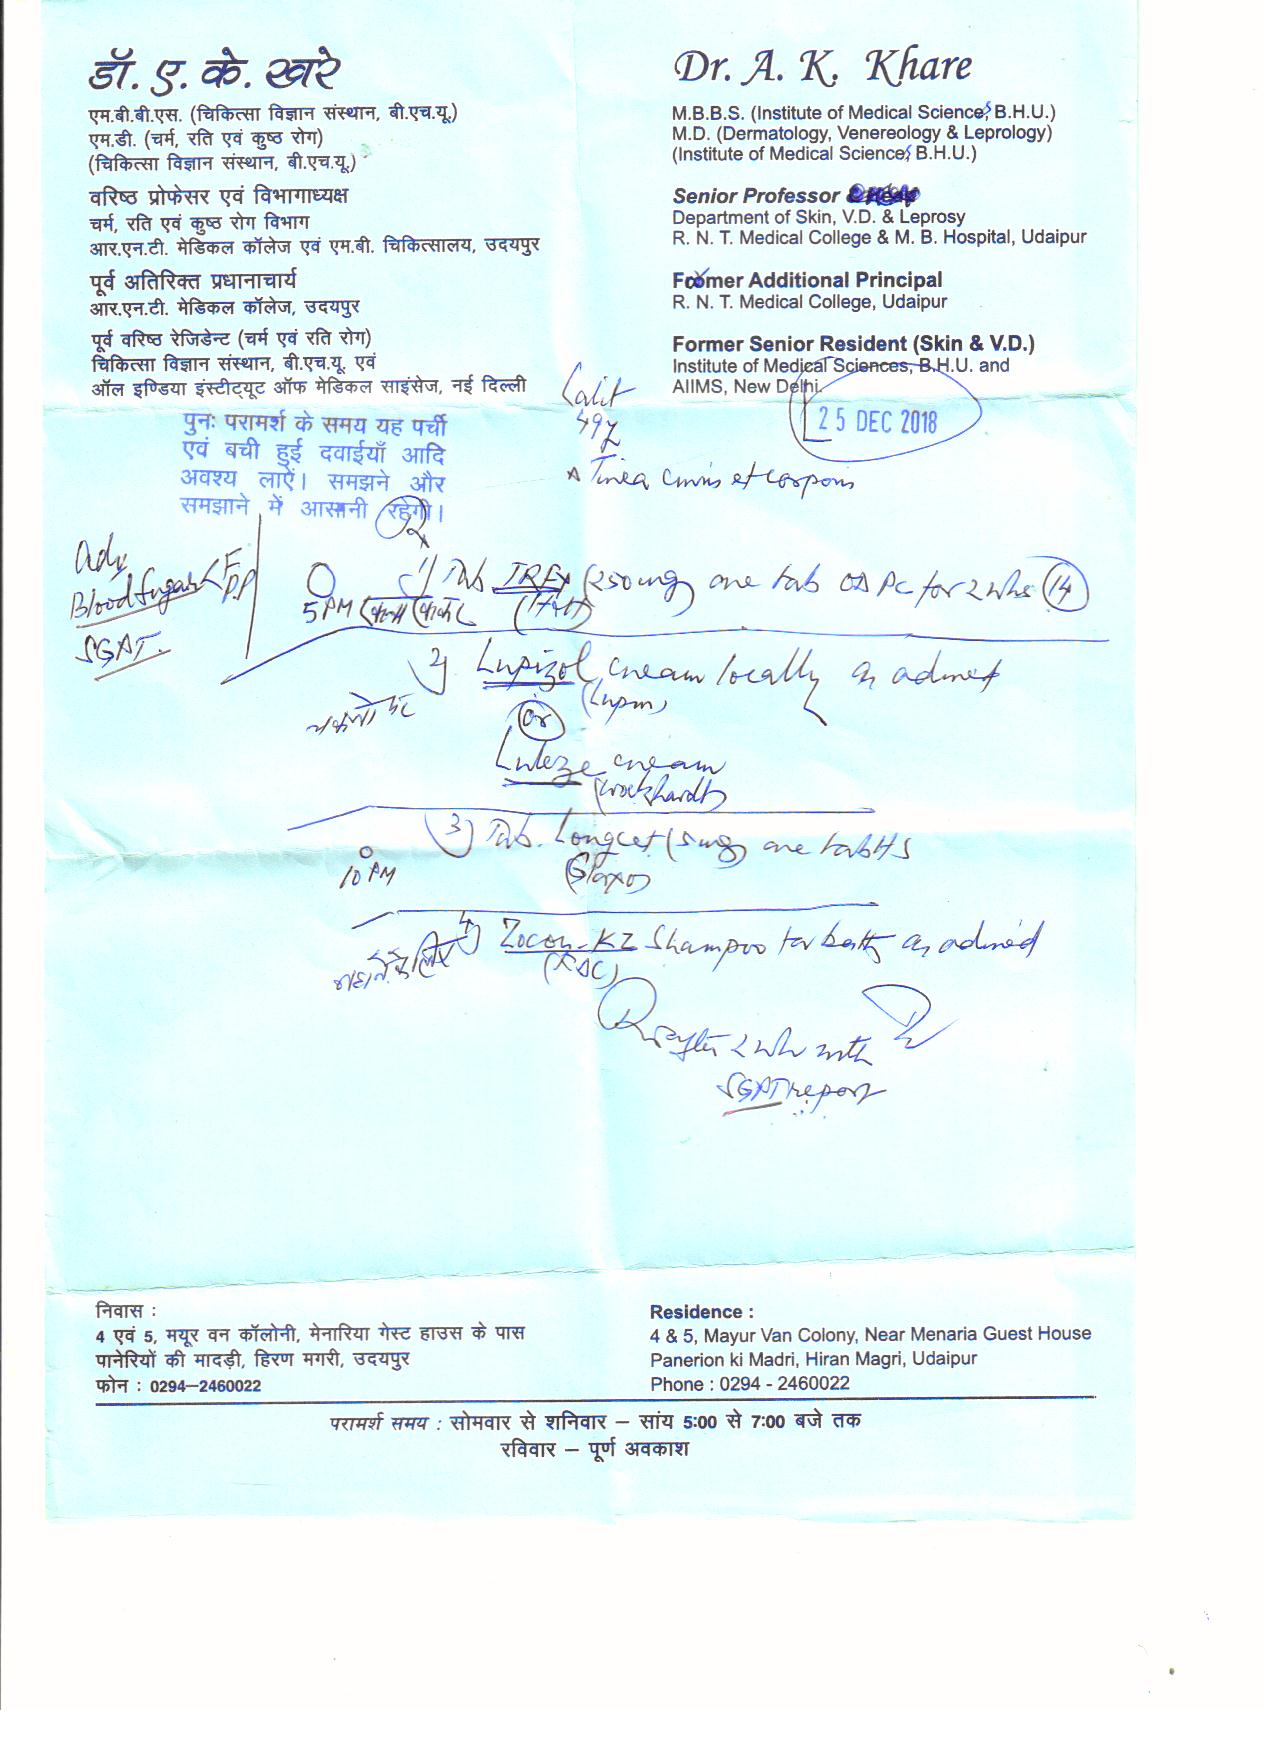 डॉ. ए. के. खरे
एम.बी.बी.एस. (चिकित्सा विज्ञान संस्थान, बी.एच.यू.)
एम.डी. (चर्म, रति एवं कुष्ठ रोग)
(चिकित्सा विज्ञान संस्थान, बी.एच.यू.)
वरिष्ठ प्रोफेसर एवं विभागाध्यक्ष
चर्म, रति एवं कुष्ठ रोग विभाग
आर.एन.टी. मेडिकल कॉलेज एवं एम.बी. चिकित्सालय, उदयपुर
पूर्व अतिरिक्त प्रधानाचार्य
आर.एन.टी. मेडिकल कॉलेज, उदयपुर
पूर्व वरिष्ठ रेजिडेन्ट (चर्म एवं रति रोग)
चिकित्सा विज्ञान संस्थान, बी.एच.यू. एवं
ऑल इण्डिया इंस्टीट्यूट ऑफ मेडिकल साइंसेज, नई दिल्ली
Dr. A. K. Khare
M.B.B.S. (Institute of Medical Sciences, B.H.U.)
M.D. (Dermatology, Venereology & Leprology)
(Institute of Medical Sciences, B.H.U.)
Senior Professor
Department of Skin, V.D. & Leprosy
R. N. T. Medical College & M. B. Hospital, Udaipur
Former Additional Principal
R. N. T. Medical College, Udaipur
Former Senior Resident (Skin & V.D.)
Institute of Medical Sciences, B.H.U. and
AIIMS, New Delhi.
पुनः परामर्श के समय यह पर्ची
एवं बची हुई दवाईयाँ आदि
अवश्य लाऐं। समझने और
समझाने में आसानी रहेगी।
25 DEC 2018
Lalit
49
Tinea cruris et corporis
Adv
Blood Sugar < F
PP
SGPT.
Rx
1) Tab. (250mg) one tab OD PC for 2 wks (14)
5 PM
2) Lupizol cream locally as advised
(Lupin)
or
Luleze cream
(Wockhardt)
3) Tab. Longcet (5mg) one tab HS
(Glaxo)
10 PM
4) Zocon-KZ Shampoo for bath as advised
(FDC)
नहाने के लिए
R after 2 wk with
SGPT report
निवास :
4 एवं 5, मयूर वन कॉलोनी, मेनारिया गेस्ट हाउस के पास
पानेरियों की मादड़ी, हिरण मगरी, उदयपुर
फोन : 0294–2460022
Residence :
4 & 5, Mayur Van Colony, Near Menaria Guest House
Panerion ki Madri, Hiran Magri, Udaipur
Phone : 0294 - 2460022
परामर्श समय : सोमवार से शनिवार – सांय 5:00 से 7:00 बजे तक
रविवार – पूर्ण अवकाश